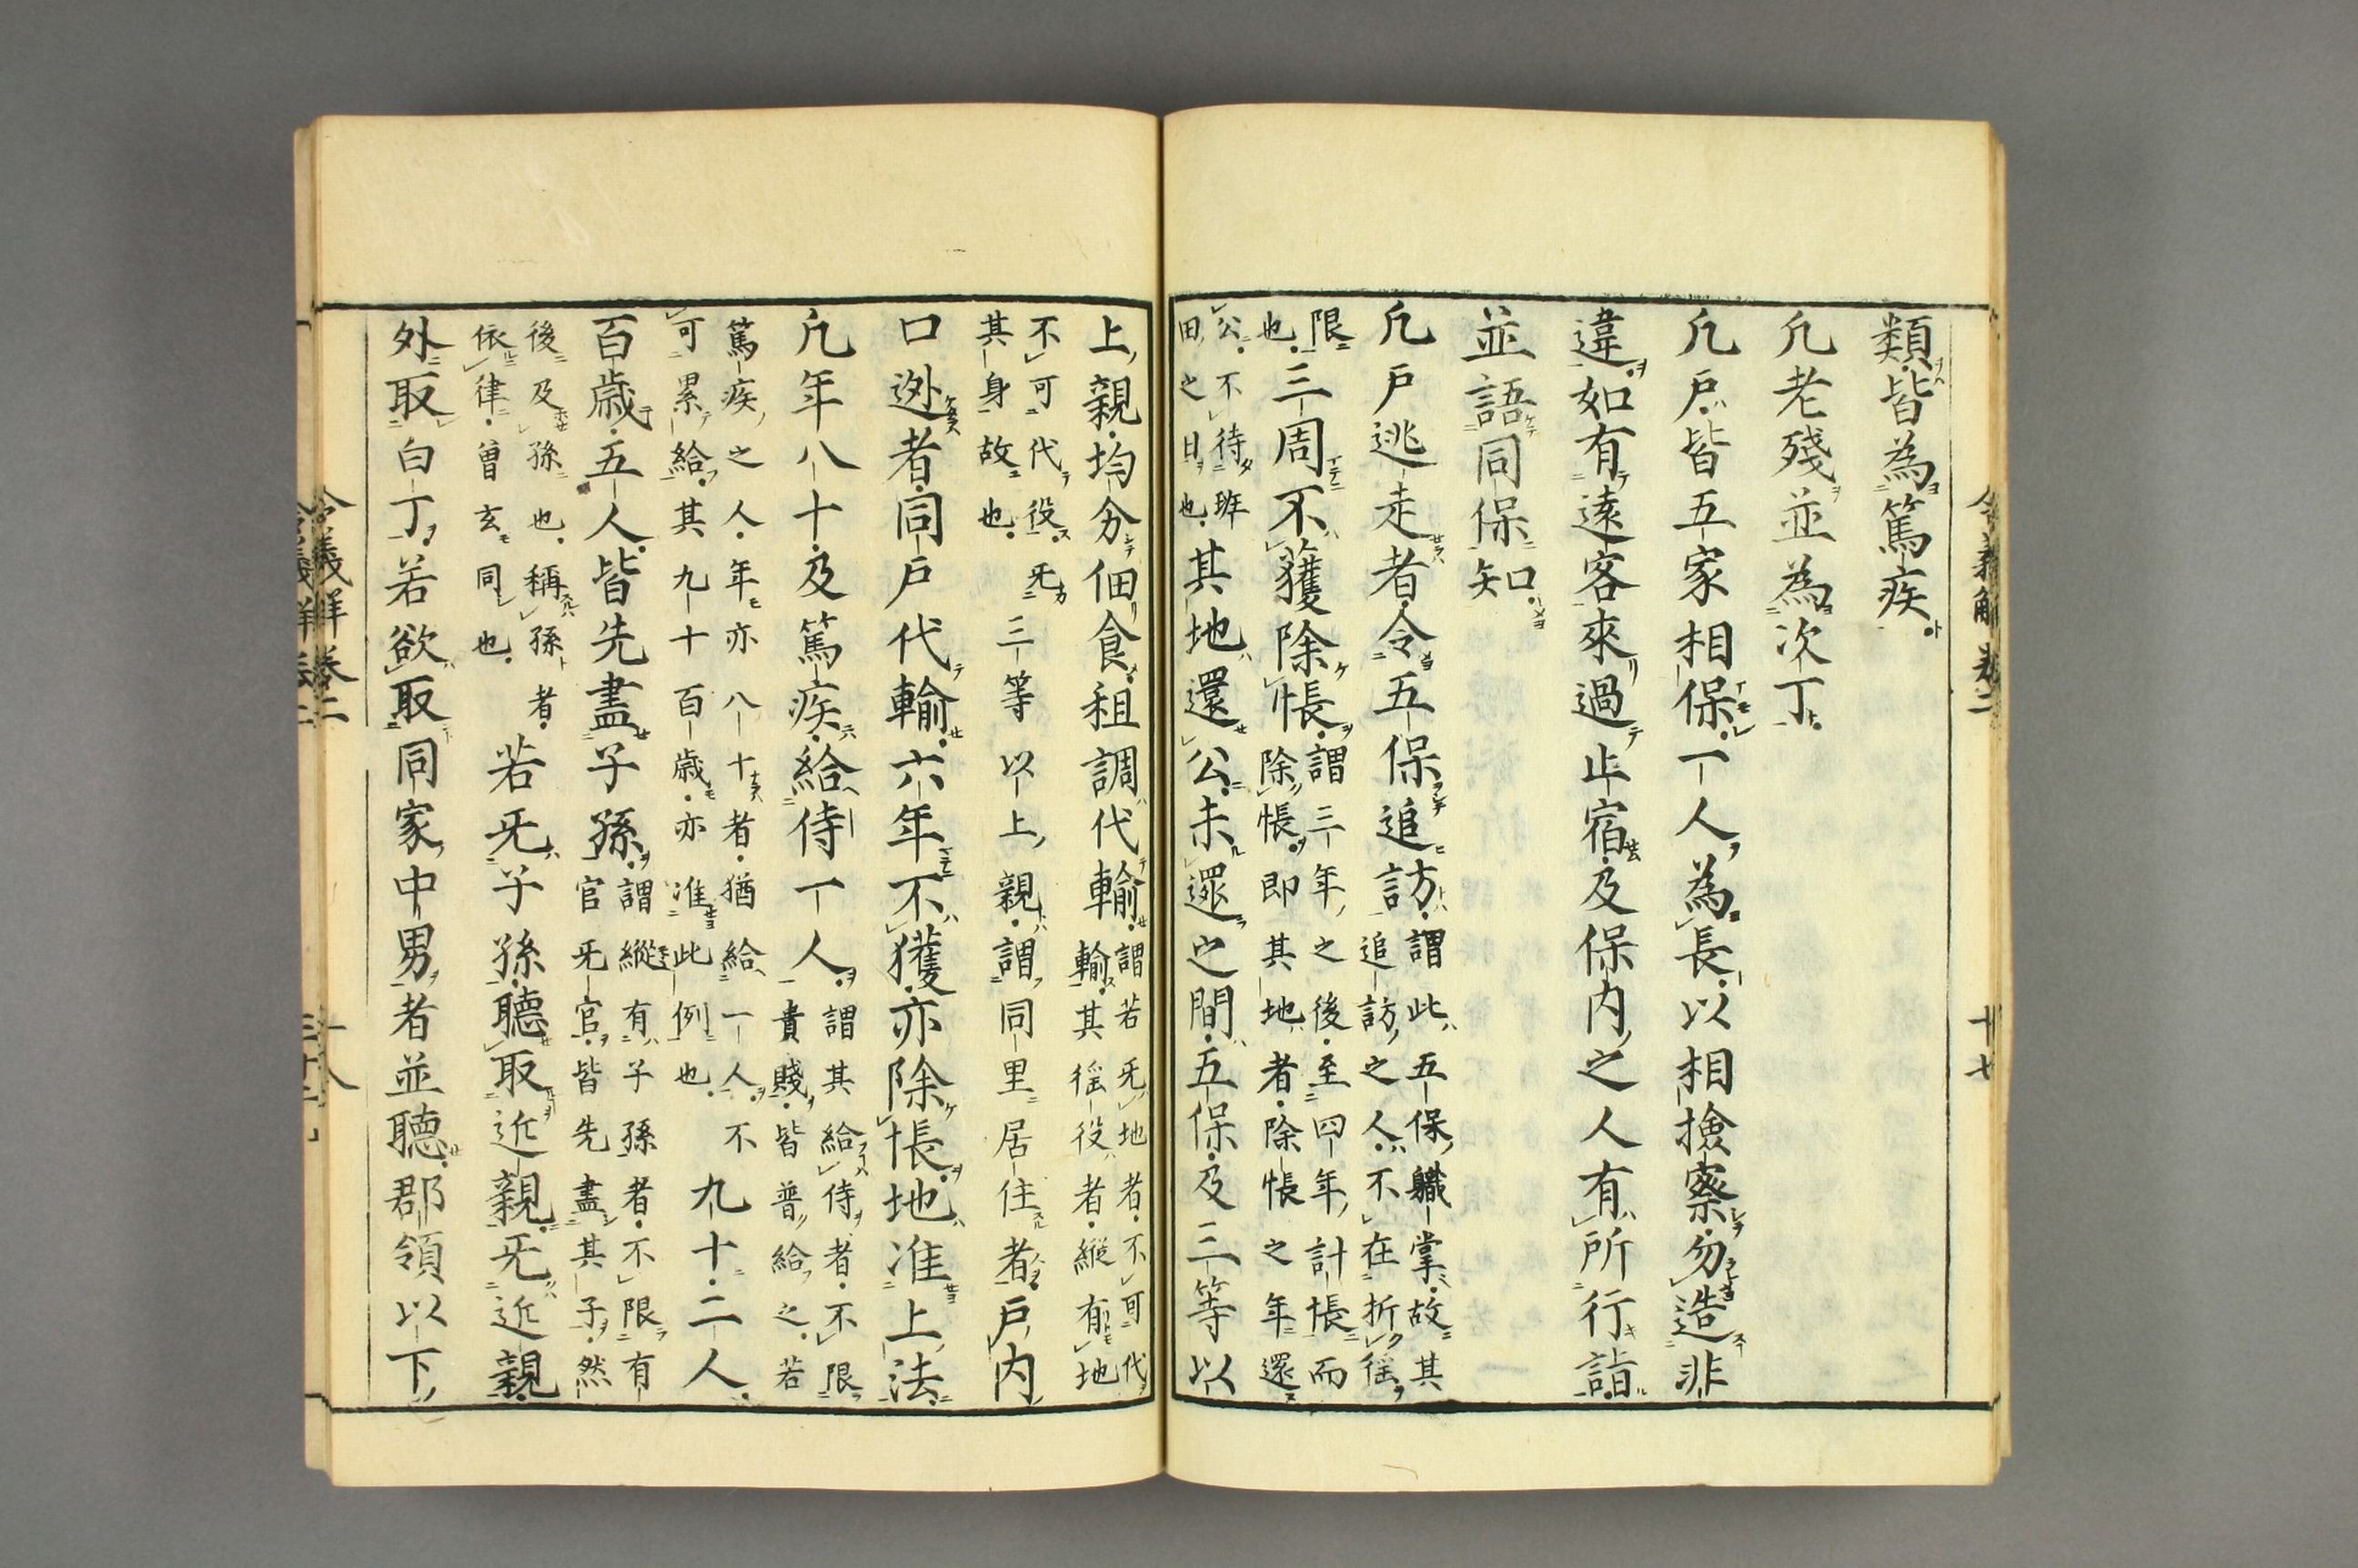 令義解卷二
十七
類皆為篤疾
凢老殘並為次丁
凢戶皆五家相保一人為長以相撿察勿造非
違如有遠客來過止宿及保内之人有所行詣
並語同保知
凢戶逃走者令五保追訪
謂此五保職掌故其
追訪之人不在折徭
限
也
三周不獲除帳
謂三年之後至四年計帳而
除帳即其地者除帳之年還
公不待班
田之日也
其地還公未還之間五保及三等以
上親均分佃食租調代輸
謂若无地者不可代
輸其徭役者縱有地
不可代役无
其身故也
三等以上親謂同里居住者戶内
口逃者同戶代輸六年不獲亦除帳地准上法
凢年八十及篤疾給侍一人
謂其給侍者不限
貴賤皆普給之若
篤疾之人年亦八十者猶給一人不
可累給其九十百歳亦准此例也
九十二人
百歳五人皆先盡子孫
謂縱有子孫者不限有
官无官皆先盡其子然
後及孫也稱孫者
依律曽玄同也
若无子孫聽取近親无近親
外取白丁若欲取同家中男者並聽郡領以下
令義解卷二
十八